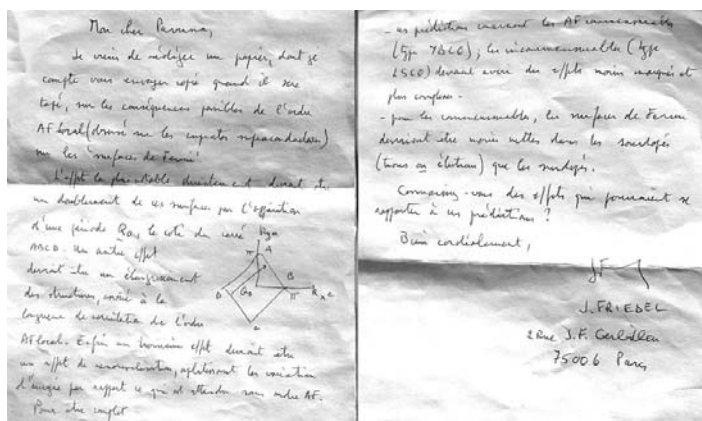 Mon cher Pavuna,
Je viens de rédiger un papier, dont je
compte vous envoyer copie quand il sera
tapé, sur les conséquences possibles de l'ordre
AF local (observé sur les cuprates supraconducteurs)
sur les surfaces de Fermi.
L'effet le plus directement devrait être
un doublement de ces surfaces par l'apparition
d'une période Qo, le coté du carré
ABCD. Un autre effet
devrait être un élargissement
des structures, à la
longueur de corrélation de l'ordre
AF local. Enfin un troisième effet devrait être
un effet de renormalisation, les variations
d'énergie par rapport ce qui est attendu sans ordre AF.
Pour être complet
π
A
B
π
D
Qo
- ces prédictions concernent les AF commensurables
(type YBCO) ; les incommensurables (type
LSCO) devraient avoir des effets moins marqués et
plus complexes -
- pour les commensurables, les surfaces de Fermi
devraient être moins nettes dans les sousdopés
(trous ou électrons) que les surdopés.
Connaissez-vous des effets qui pourraient se
rapporter à ces prédictions ?
Bien cordialement,
J. FRIEDEL
2 Rue J.F. Gerbillon
75006 Paris